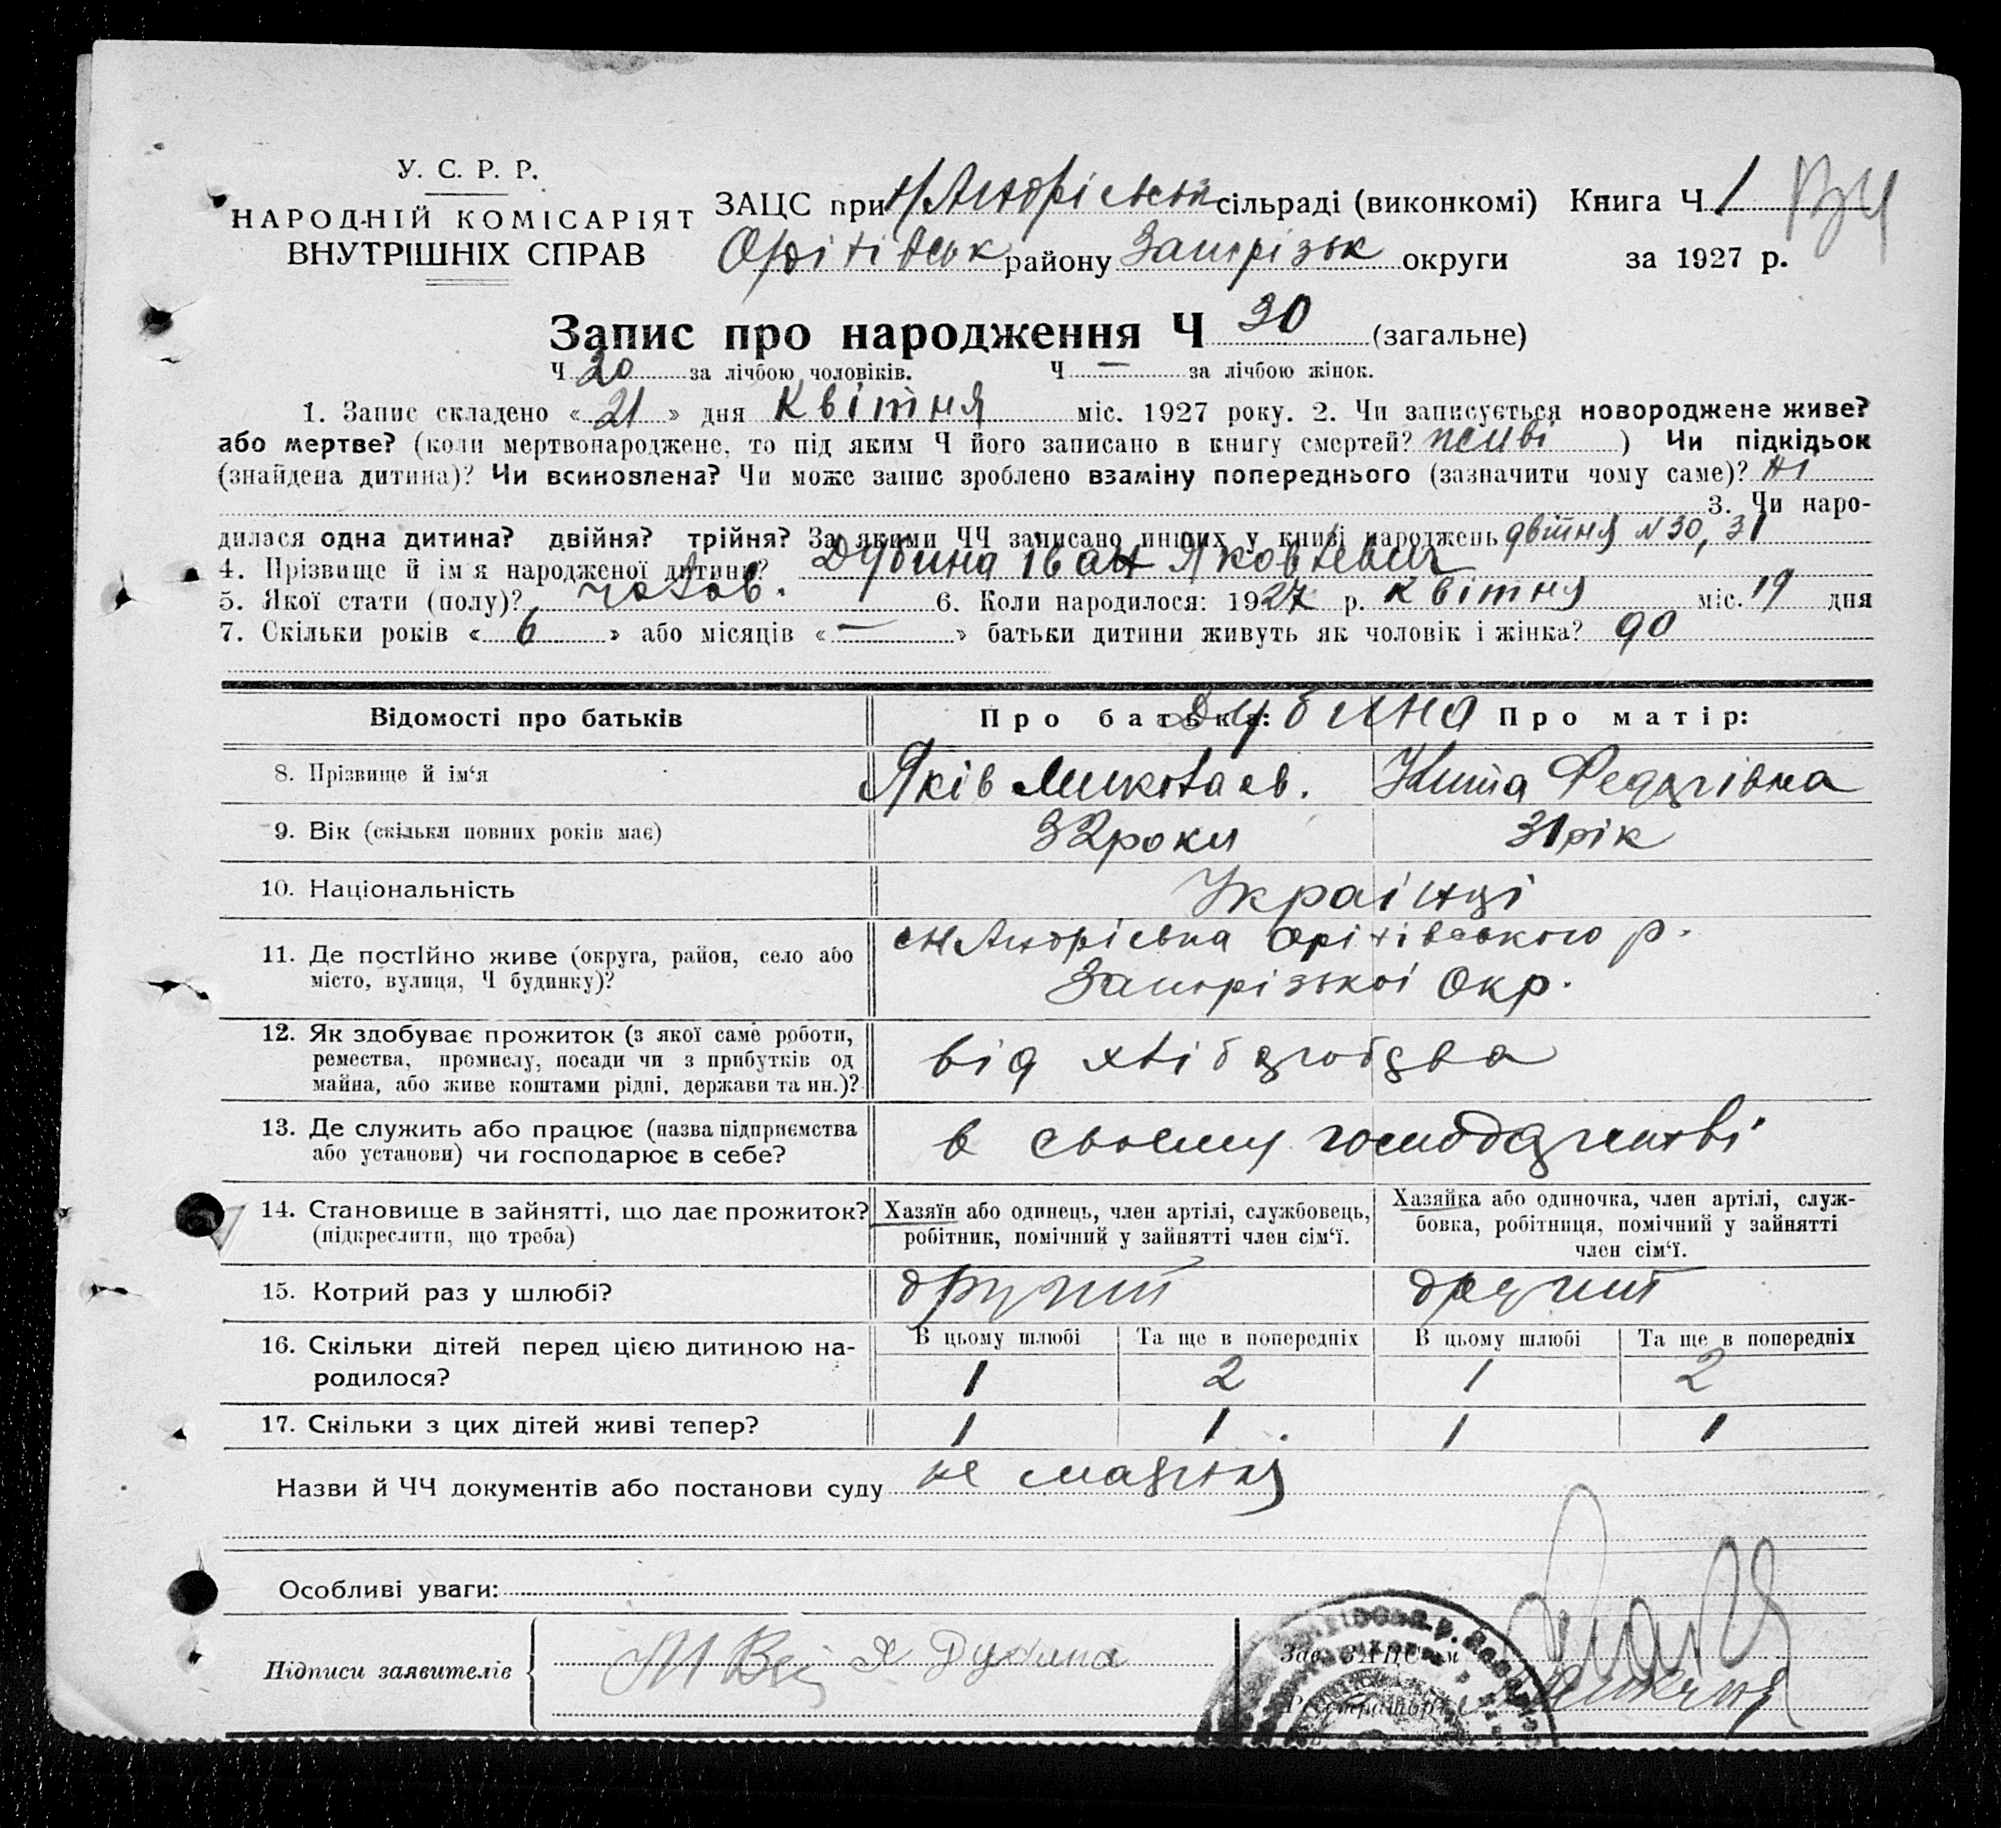 У. С. Р. Р.
НАРОДНІЙ КОМІСАРІЯТ
ВНУТРІШНІХ СПРАВ
ЗАЦС при Н/Андріевській сільраді (виконкомі) Книга Ч 1
Оріхівськ району Запорізьк округи за 1927 р.
Запис про народження Ч 30 (загальне)
Ч 20 за лічбою чоловіків. Ч — за лічбою жінок.
1. Запис складено « 21 » дня Квітня міс. 1927 року. 2. Чи записується новороджене живе?
або мертве? (коли мертвонароджене, то під яким Ч його записано в книгу смертей? живі ) Чи підкідьок
(знайдена дитина)? Чи всиновлена? Чи може запис зроблено взаміну попереднього (зазначити чому саме)? ні
3. Чи наро-
дилася одна дитина? двійня? трійня? За якими ЧЧ записано инших у книзі народжень двійня N 30, 31
4. Прізвище й імя народженої дитини? Дубина Іван Яковлевич
5. Якої стати (полу)? чолов. 6. Коли народилося: 1927 р. Квітня міс. 19 дня
7. Скільки років « 6 » або місяців « — » батьки дитини живуть як чоловік і жінка? 90
Відомості про батьків Про батька: Дубина Про матір:
8. Прізвище й ім‘я Яків Миколаев. Федорівна
9. Вік (скільки повних років має) 32 роки 31 рік
10. Національність Украінці
11. Де постійно живе (округа, район, село або
місто, вулиця, Ч будинку)?
с Н Андріевка Оріхівського р.
Запорізькоі Окр.
12. Як здобуває прожиток (з якої саме роботи,
ремества, промислу, посади чи з прибутків од
майна, або живе коштами рідні, держави та ин.)?
від хліборобства
13. Де служить або працює (назва підприємства
або установи) чи господарює в себе?
в своему господарстві
14. Становище в зайнятті, що дає прожиток?
(підкреслити, що треба)
Хазяїн або одинець, член артілі, службовець,
робітник, помічний у зайнятті член сім‘ї.
Хазяйка або одиночка, член артілі, служ-
бовка, робітниця, помічний у зайнятті
член сім‘ї.
15. Котрий раз у шлюбі? другий другий
16. Скільки дітей перед цією дитиною на-
родилося?
В цьому шлюбі Та ще в попередніх В цьому шлюбі Та ще в попередніх
1 2 1 2
17. Скільки з цих дітей живі тепер? 1 1 1 1
Назви й ЧЧ документів або постанови суду
Особливі уваги:
Підписи заявителів Я Дубина
Зав. ЗАЦСом
Реєстратор